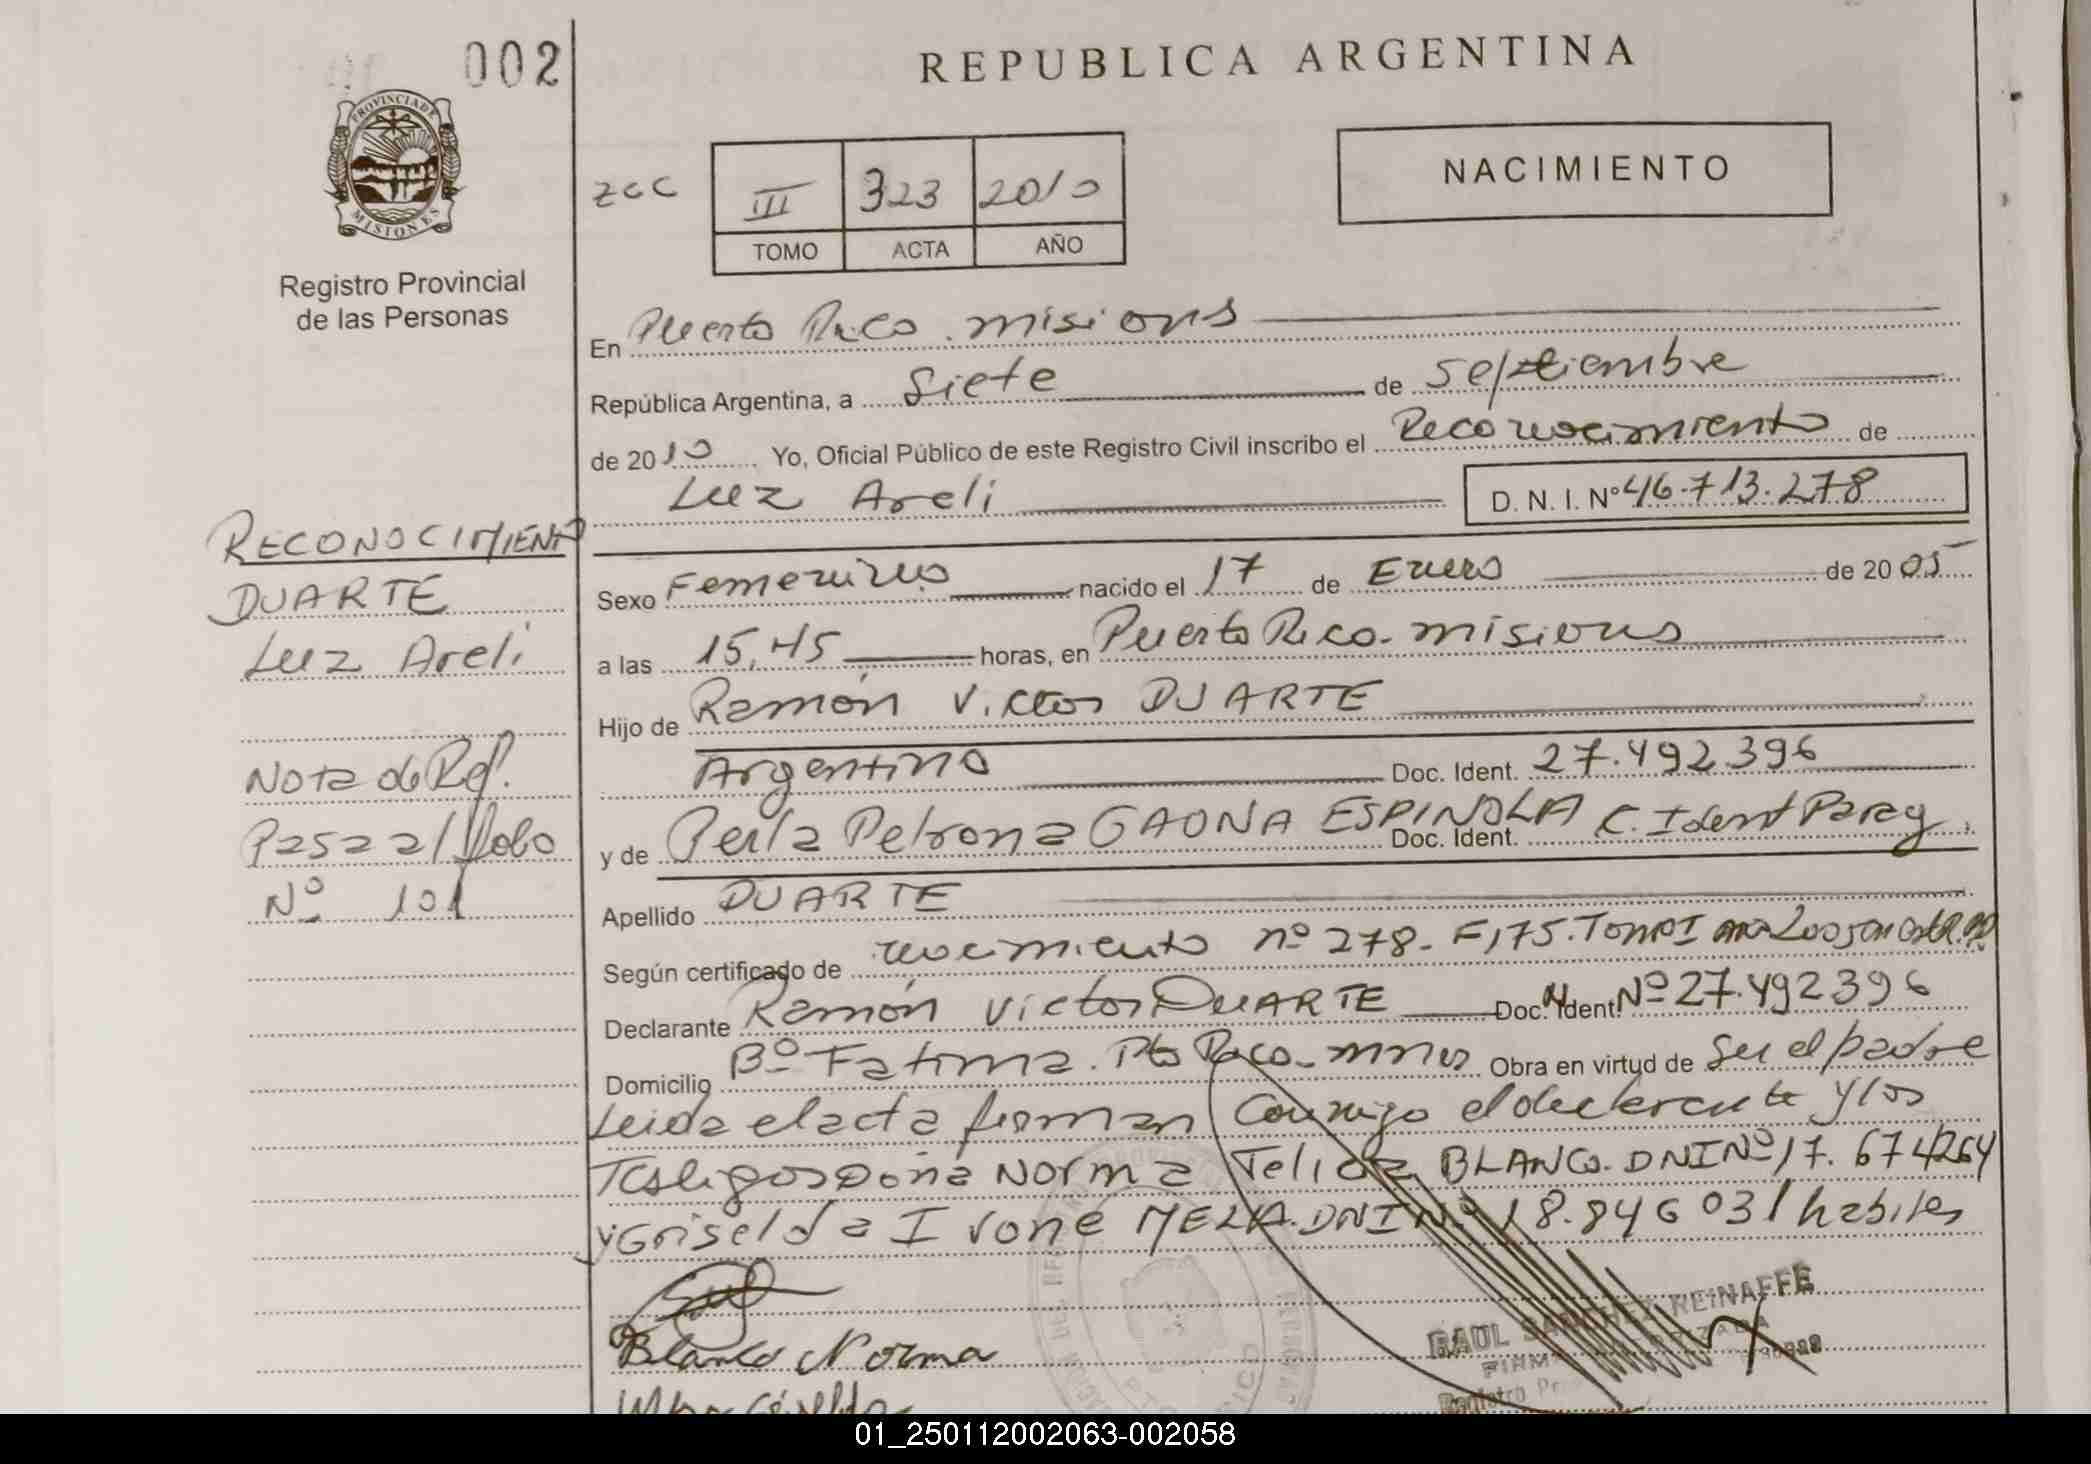 002
REPUBLICA ARGENTINA
PROVINCIA DE
MISIONES
Registro Provincial
de las Personas
NACIMIENTO
III 323 2010
TOMO ACTA AÑO
En Puerto Rico. misions
República Argentina, a Siete de Septiembre
de 2010 Yo, Oficial Público de este Registro Civil inscribo el Reconocimiento de
Luz Areli D. N. I. Nº 46.713.278
RECONOCIMIENTO
DUARTE
Luz Areli
Nota de Ref.
Pasa al folio
Nº 101
Sexo Femenino nacido el 17 de Enero de 2005
a las 15,45 horas, en Puerto Rico. misions
Hijo de Ramón Victor DUARTE
Argentino Doc. Ident. 27.492.396
y de Perla Petrona GAONA ESPINOLA Doc. Ident. C. Ident Parag.
Apellido DUARTE
Según certificado de nacimiento nº 278- F,175. Tomo I año 2005
Declarante Ramón Victor DUARTE Doc. Ident. Nº 27.492396
Domicilio Bº Fatima. Pto Rico. mnes Obra en virtud de Ser el padre
Leida el acta firman Conmigo el declarante y los
Testigos Doña Norma Felicia BLANCO. DNI Nº 17. 674264
y Griselda Ivone MELA. DNI Nº 18.846031 habiles
Blanco Norma
RAUL SANCHEZ REINAFFE
FIRMA AUTORIZADA
01_250112002063-002058